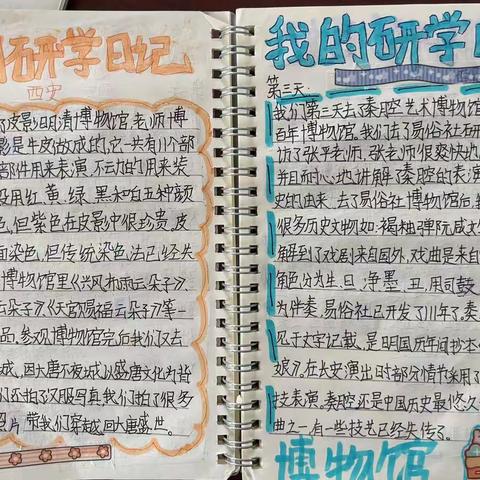 研学日记
西安
了皮影明清博物馆,老师博
影是牛皮做成的,它一共有11个部
部件用来表演,不云力的用来装
没用红、黄、绿、黑和白五种颜
色,但紫色在皮影中很珍贵,皮
面染色,但传统染色法已经失
博物馆里《兴风布雨云朵子》
云朵子》《天官赐福云朵子》等一
品,参观博物馆完后我们又去
城,因大唐不夜城以盛唐文化为背
们还拍了汉服写真我们拍了很多
照片,带我们穿越回大唐盛世。
我的研学日
第三天
我们第三天去了秦腔艺术博物馆
百年博物馆,我们去了易俗社石研
访了张平老师,张老师很爽快地
并且而心地讲解了秦腔的表演
史的由来,去了易俗社博物馆后,
很多历史文物如:褐柚弹阮,咸文
解到了戏剧来自国外,戏曲是来自
角色分为生、旦、净墨、丑,用司鼓
为伴奏,易俗社已开发了111年了,秦
见于文字记载,是明国历年间抄本
娘》。在长安演出时部分情节采用了
技表演。秦腔还是中国历史最悠久
曲之一,有一些技艺已经失传了。
博物馆